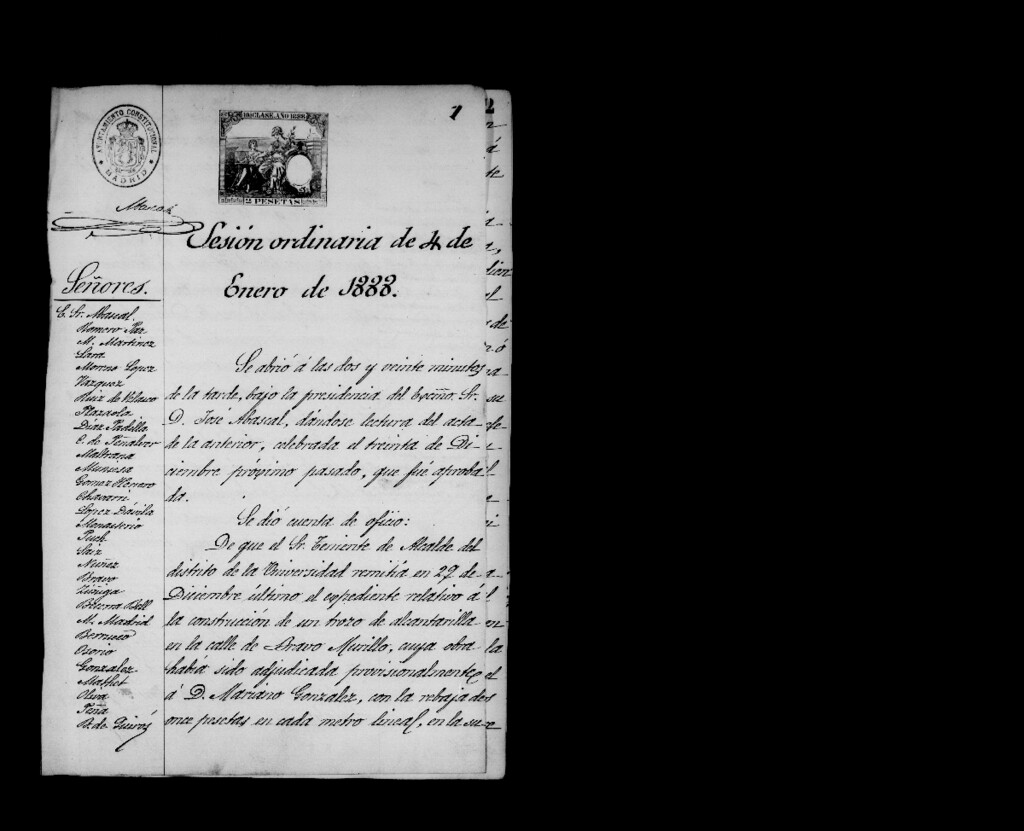 1
AYUNTAMIENTO CONSTITUCIONAL
MADRID
10ª CLASE. AÑO 1888
2 PESETAS
Abascal
Sesión ordinaria de 4 de
Enero de 1888.
Señores.
E. Sr. Abascal.
Romero Paz
M. Martinez
Lara
Moreno Lopez
Vazquez
Ruiz de Velasco
Plazaola
Diaz Padilla
C. de Peñalver
Maltrana
Muniesa
Gomez Herrero
Chavarri
Lopez Dávila
Monasterio
Puch
Saiz
Nuñez
Bravo
Zúñiga
Becerra Bell
M. Madrid
Berrueco
Osorio
Gonzalez
Mathet
Oliva
Peña
B. de Quirós
Se abrió á las dos y veinte minutos
de la tarde, bajo la presidencia del Excmo. Sr.
D. José Abascal, dándose lectura del acta
de la anterior, celebrada el treinta de Di-
ciembre próximo pasado, que fué aproba
da.
Se dió cuenta de oficio:
De que el Sr. Teniente de Alcalde del
distrito de la Universidad remitia en 29 de
Diciembre último el expediente relativo á
la construcción de un trozo de alcantarilla
en la calle de Bravo Murillo, cuya obra
habia sido adjudicada provisionalmente
á D. Mariano Gonzalez, con la rebaja de
once pesetas en cada metro lineal, en la su-
2